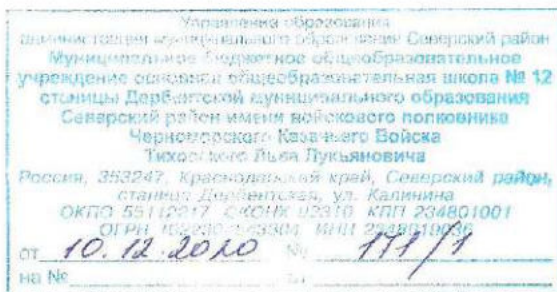 Управления образования
администрации муниципального образования Северский район
Муниципальное бюджетное общеобразовательное
учреждение основная общеобразовательная школа № 12
станицы Дербентской муниципального образования
Северский район имени войскового полковника
Черноморского Казачьего Войска
Тиховского Льва Лукьяновича
Россия, 353247, Краснодарский край, Северский район,
станица Дербентская, ул. Калинина
ОКПО 55112917 КПП 234801001
ОГРН ИНН 2348019036
от 10.12.2020 № 171/1
на №